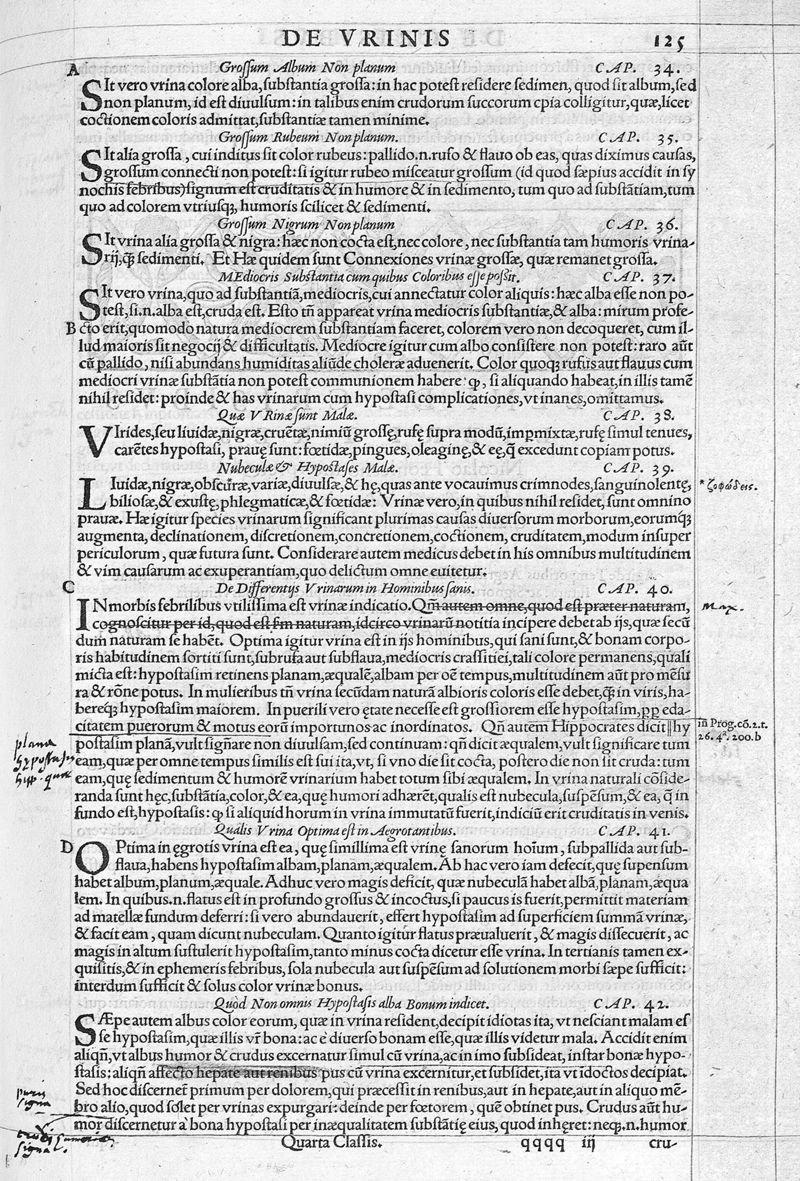 DE VRINIS 125
A Grossum Album Non planum CAP. 34.
SIt vero vrina colore alba, substantia grossa: in hac potest residere sedimen, quod sit album, sed
non planum, id est diuulsum: in talibus enim crudorum succorum cpia colligitur, quæ, licet
coctionem coloris admittat, substantiæ tamen minime.
Grossum Rubeum Non planum. CAP. 35.
SIt alia grossa, cui inditus sit color rubeus: pallido.n.rufo & flauo ob eas, quas diximus causas,
grossum connecti non potest: si igitur rubeo misceatur grossum (id quod sæpius accidit in sy
nochis febribus) signum est cruditatis & in humore & in sedimento, tum quo ad substãtiam, tum
quo ad colorem vtriusqꝫ, humoris scilicet & sedimenti.
Grossum Nigrum Non planum CAP. 36.
SIt vrina alia grossa & nigra: hæc non cocta est, nec colore, nec substantia tam humoris vrina-
rij, ꝙ̃ sedimenti. Et Hæ quidem sunt Connexiones vrinæ grossæ, quæ remanet grossa.
MEdiocris Substantia cum quibus Coloribus esse possit. CAP. 37.
SIt vero vrina, quo ad substantiã, mediocris, cui annectatur color aliquis: hæc alba esse non po-
test, si.n.alba est, cruda est. Esto tñ appareat vrina mediocris substantiæ, & alba: mirum profe-
B cto erit, quomodo natura mediocrem substantiam faceret, colorem vero non decoqueret, cum il-
lud maioris sit negocij & difficultatis. Mediocre igitur cum albo consistere non potest: raro aũt
cũ pallido, nisi abundans humiditas aliũde choleræ aduenerit. Color quoqꝫ rufus aut flauus cum
mediocri vrinæ substãtia non potest communionem habere: ꝙ, si aliquando habeat, in illis tamẽ
nihil residet: proinde & has vrinarum cum hypostasi complicationes, vt inanes, omittamus.
Quæ VRinæ sunt Malæ. CAP. 38.
VIrides, seu liuidæ, nigræ, cruẽtæ, nimiũ grossę, rufę supra modũ, impmixtæ, rufę simul tenues,
carẽtes hypostasi, prauę sunt: fœtidæ, pingues, oleaginę, & eę, ꝗ̃ excedunt copiam potus.
Nubeculæ & Hypostases Malæ. CAP. 39.
LIuidæ, nigræ, obscuræ, variæ, diuulsæ, & hę, quas ante vocauimus crimnodes, sanguinolentę, * ζοφώδεις.
biliosæ, & exustę, phlegmaticæ, & fœtidæ: Vrinæ vero, in quibus nihil residet, sunt omnino
prauæ. Hæ igitur species vrinarum significant plurimas causas diuersorum morborum, eorumqꝫ
augmenta, declinationem, discretionem, concretionem, coctionem, cruditatem, modum insuper
periculorum, quæ futura sunt. Considerare autem medicus debet in his omnibus multitudinem
& vim causarum ac exuperantiam, quo delictum omne euitetur.
C De Differentijs Vrinarum in Hominibus sanis. CAP. 40.
IN morbis febrilibus vtilissima est vrinæ indicatio. Qm̃ autem omne, quod est præter naturam, Max.
cognoscitur per id, quod est fm naturam, idcirco vrinarũ notitia incipere debet ab ijs, quæ secũ
dum̃ naturam se habẽt. Optima igitur vrina est in ijs hominibus, qui sani sunt, & bonam corpo-
ris habitudinem sortiti sunt, subrufa aut subflaua, mediocris crassitiei, tali colore permanens, quali
micta est: hypostasim retinens planam, æqualẽ, albam per oẽ tempus, multitudinem aut pro mẽsu
ra & rõne potus. In mulieribus tñ vrina secũdam naturã albioris coloris esse debet, ꝙ̃ in viris, ha-
bereqꝫ hypostasim maiorem. In puerili vero ętate necesse est grossiorem esse hypostasim, ꝓꝑ eda-
citatem puerorum & motus eorũ importunos ac inordinatos. Qñ autem Hippocrates dicit hy in Prog.cõ.2.t.
postasim planã, vult signare non diuulsam, sed continuam: qñ dicit æqualem, vult significare tum 26. 4ª. 200.b
plana
hypostasis
hipp. quæ
eam, quæ per omne tempus similis est sui ita, vt, si vno die sit cocta, postero die non sit cruda: tum
eam, quę sedimentum & humorẽ vrinarium habet totum sibi æqualem. In vrina naturali cõside-
randa sunt hęc, substãtia, color, & ea, quę humori adhærẽt, qualis est nubecula, suspẽsum, & ea, ꝗ̃ in
fundo est, hypostasis: ꝙ si aliquid horum in vrina immutatũ fuerit, indiciũ erit cruditatis in venis.
Qualis Vrina Optima est in Aegrotantibus. CAP. 41.
D OPtima in ęgrotis vrina est ea, quę simillima est vrinę sanorum hoĩum, subpallida aut sub-
flaua, habens hypostasim albam, planam, æqualem. Ab hac vero iam defecit, quę supensum
habet album, planum, æquale. Adhuc vero magis deficit, quæ nubeculã habet albã, planam, æqua
lem. In quibus.n.flatus est in profundo grossus & incoctus, si paucus is fuerit, permittit materiam
ad matellæ fundum deferri: si vero abundauerit, effert hypostasim ad superficiem summã vrinæ,
& facit eam, quam dicunt nubeculam. Quanto igitur flatus præualuerit, & magis dissecuerit, ac
magis in altum sustulerit hypostasim, tanto minus cocta dicetur esse vrina. In tertianis tamen ex-
quisitis, & in ephemeris febribus, sola nubecula aut suspẽsum ad solutionem morbi sæpe sufficit:
interdum sufficit & solus color vrinæ bonus.
Quòd Non omnis Hypostasis alba Bonum indicet. CAP. 42.
SÆpe autem albus color eorum, quæ in vrina resident, decipit idiotas ita, vt nesciant malam es
se hypostasim, quæ illis vr̃ bona: ac è diuerso bonam esse, quæ illis videtur mala. Accidit enim
aliqñ, vt albus humor & crudus excernatur simul cũ vrina, ac in imo subsideat, instar bonæ hypo-
stasis: aliqñ affecto hepate aut renibus pus cũ vrina excernitur, et subsidet, ita vt ĩdoctos decipiat.
Sed hoc discernet̃ primum per dolorem, qui præcessit in renibus, aut in hepate, aut in aliquo mẽ-
puris
signa
bro alio, quod solet per vrinas expurgari: deinde per fœtorem, quẽ obtinet pus. Crudus aũt hu-
mor discernetur à bona hypostasi per inæqualitatem substãtię eius, quod inhęret: neqꝫ.n.humor
crudi humoris
signa.
Quarta Classis. qqqq iij cru-